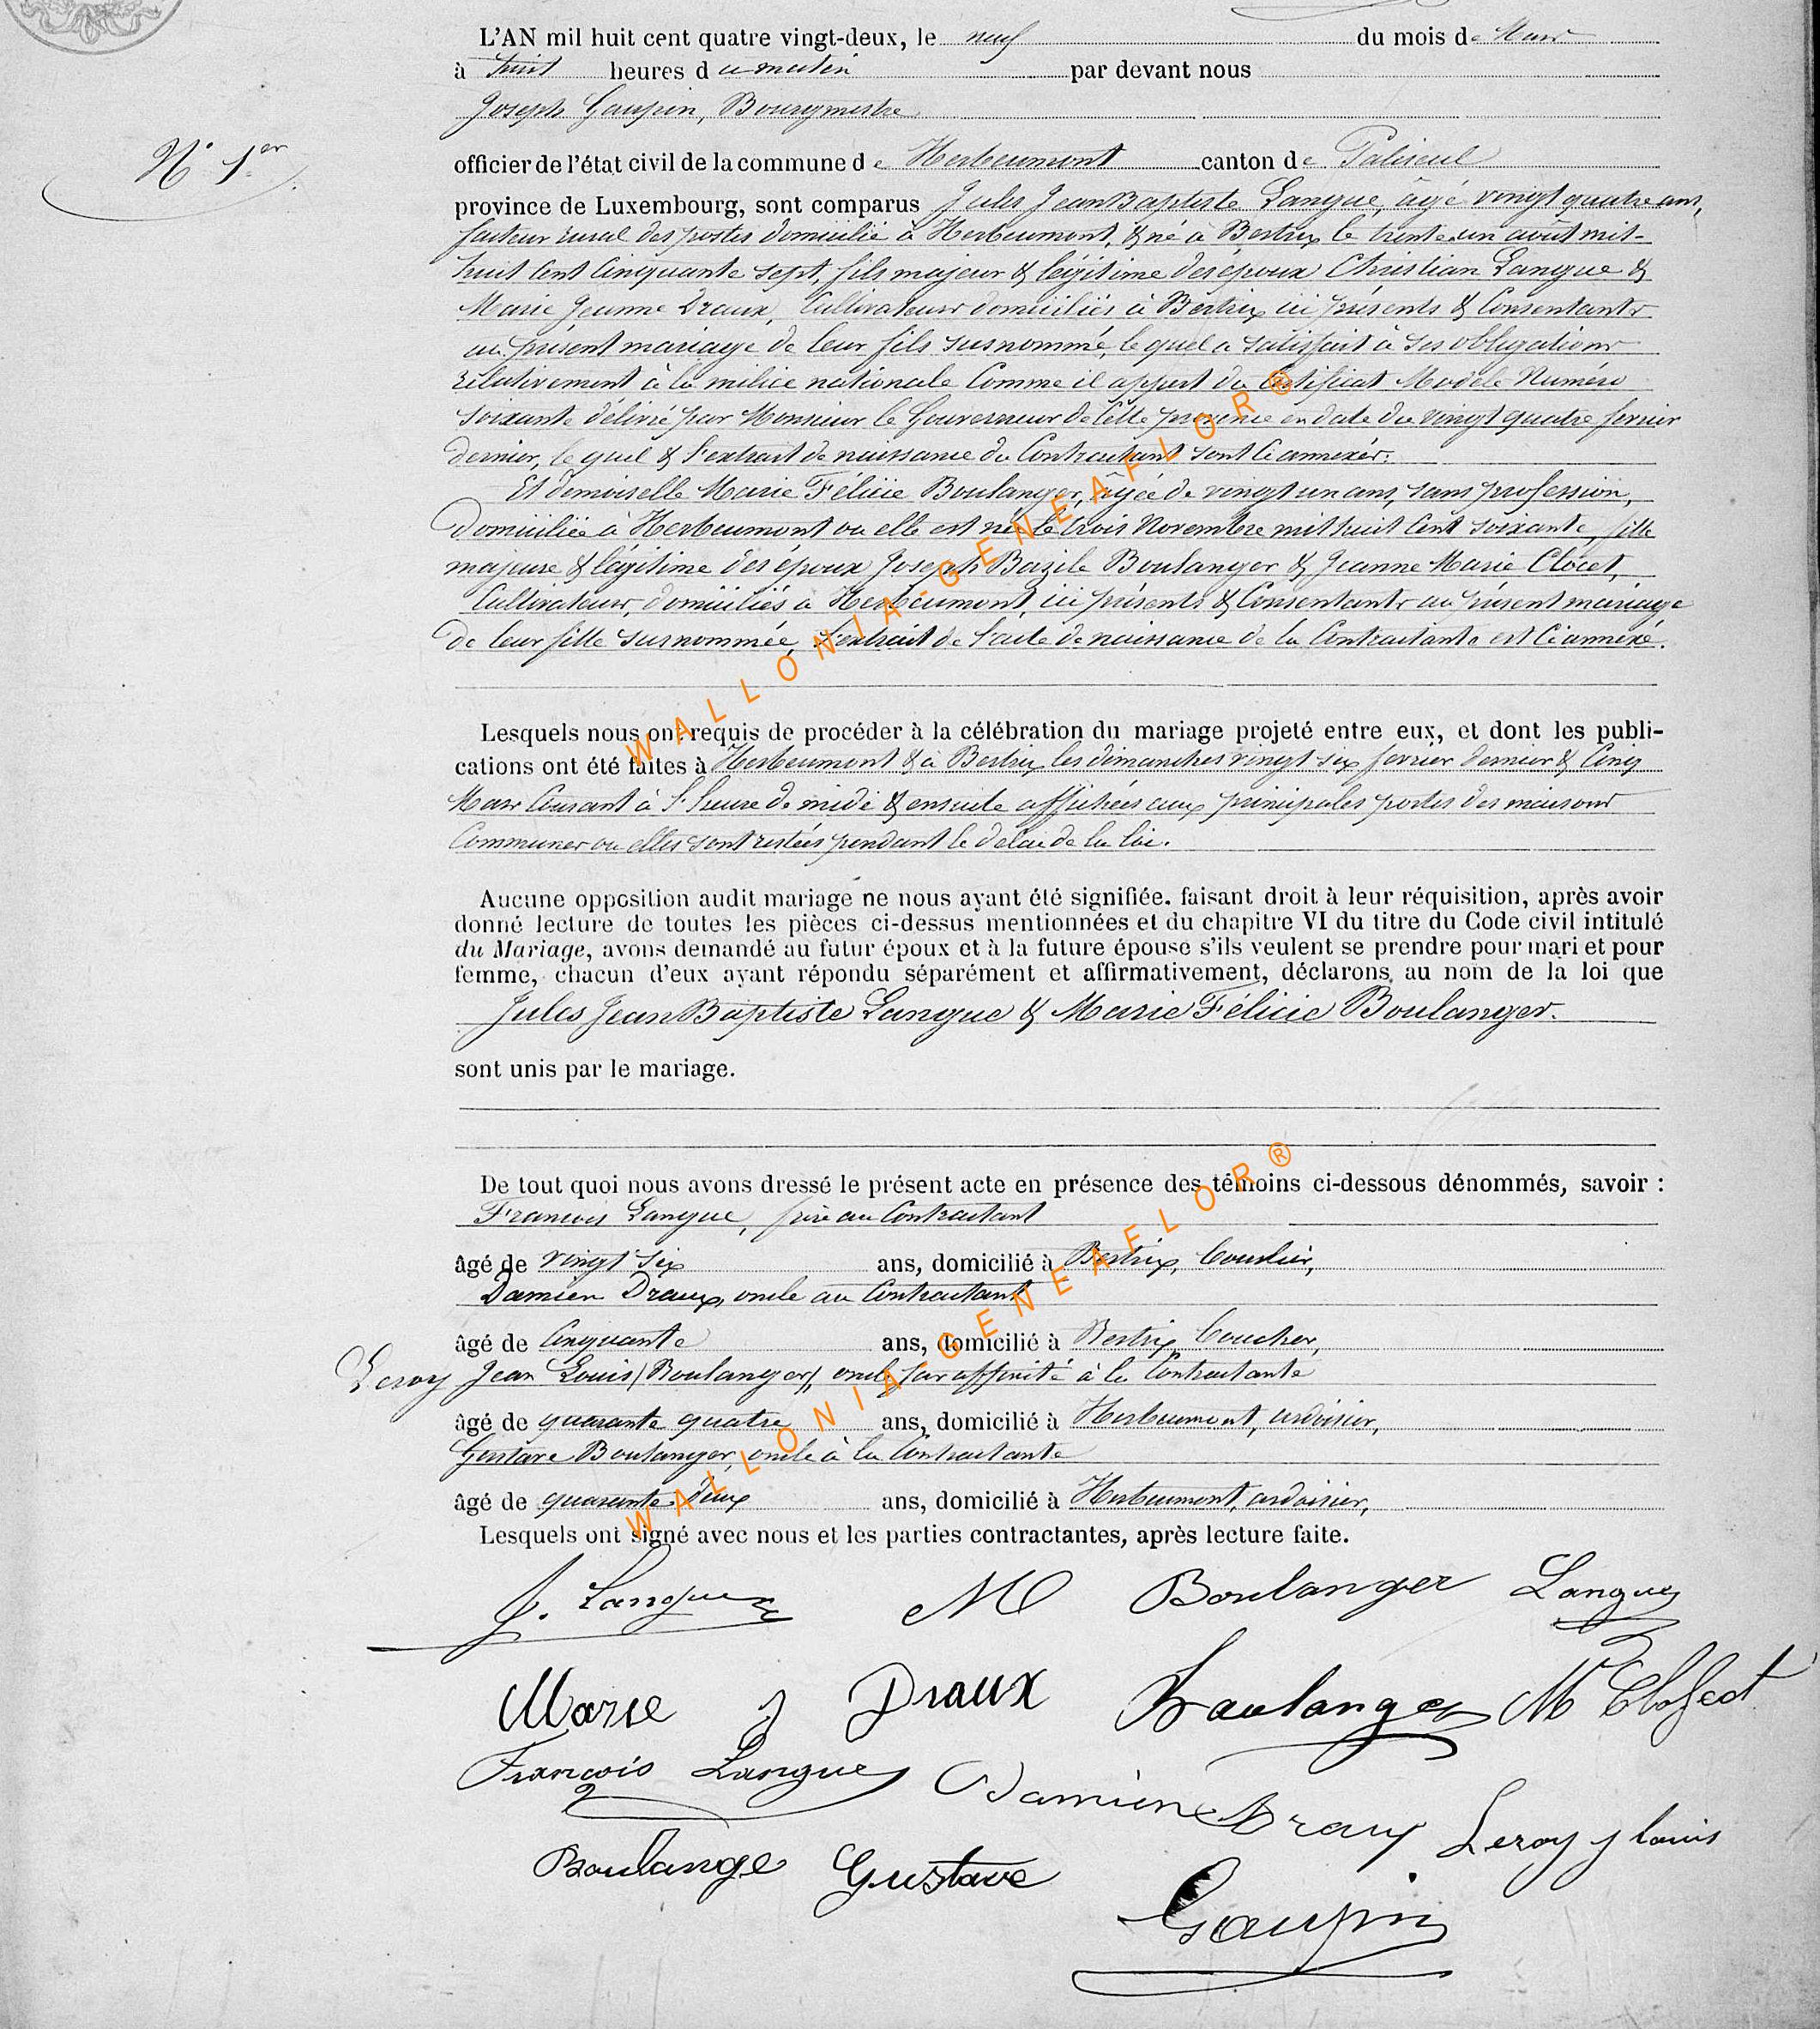 L'AN mil huit cent quatre vingt-deux, le neuf du mois de Mars
à huit heures du matin par devant nous
Joseph Gaupin, Bourgmestre
N° 1er
officier de l'état civil de la commune de Herbeumont canton de Paliseul
province de Luxembourg, sont comparus Jules Jean Baptiste Langue, âgé vingt quatre ans,
facteur rural des postes domicilié à Herbeumont, & né à Bertrix le trente un août mil-
huit cent cinquante sept, fils majeur & légitime des époux Christian Langue &
Marie Jeanne Draux, Cultivateurs domiciliés à Bertrix ici présents & Consentants
au présent mariage de leur fils susnommé, le quel a satisfait à ses obligations
relativement à la milice nationale Comme il appert du Certificat Modèle Numéro
soixante délivré par Monsieur le Gouverneur de Cette province en date du vingt quatre fevrier
dernier, le quel & l'extrait de naissance du Contractant sont Ci annexés.
Et demoiselle Marie Félicie Boulanger, âgée de vingt un ans, sans profession,
domiciliée à Herbeumont ou elle est née le trois Novembre mil huit Cent soixante, fille
majeure & légitime des époux Joseph Bazile Boulanger & Jeanne Marie Closet,
Cultivateurs, domiciliés à Herbeumont, ici présents & Consentants au présent mariage
de leur fille susnommée, l'extrait de l'acte de naissance de la Contractante est Ci annexé.
Lesquels nous ont requis de procéder à la célébration du mariage projeté entre eux, et dont les publi-
cations ont été faites à Herbeumont & à Bertrix les dimanches vingt six fevrier dernier & Cinq
Mars Courant à l'heure de midi & ensuite affichées aux principales portes des maisons
Communes ou elles sont restées pendant le délai de la loi.
Aucune opposition audit mariage ne nous ayant été signifiée. faisant droit à leur réquisition, après avoir
donné lecture de toutes les pièces ci-dessus mentionnées et du chapitre VI du titre du Code civil intitulé
du Mariage, avons demandé au futur époux et à la future épouse s'ils veulent se prendre pour mari et pour
femme, chacun d'eux ayant répondu séparément et affirmativement, déclarons, au nom de la loi que
Jules Jean Baptiste Langue & Marie Félicie Boulanger.
sont unis par le mariage.
De tout quoi nous avons dressé le présent acte en présence des témoins ci-dessous dénommés, savoir :
Francois Langue, frère au Contractant
âgé de vingt six ans, domicilié à Bertrix,
Damien Draux, oncle au Contractant
âgé de Cinquante ans, domicilié à Bertrix, Coucher,
Leroy Jean Louis (Boulanger), oncle par affinité à la Contractante
âgé de quarante quatre ans, domicilié à Herbeumont, ardoisier,
Gustave Boulanger, oncle à la Contractante
âgé de quarante deux ans, domicilié à Herbeumont, ardoisier,
Lesquels ont signé avec nous et les parties contractantes, après lecture faite.
J. Langue M Boulanger Langue
Marie J Draux Boulanger M Closet
François Langue Damien Draux Leroy J louis
Boulange Gustave
Gaupin
WALLONIA-GENEAFLOR®
WALLONIA-GENEAFLOR®